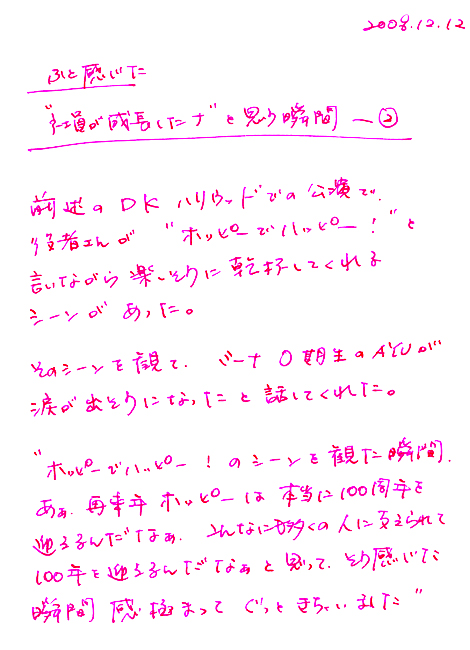 2008.12.12
ふと感じた
"社員が成長したナ"と思う瞬間 ― ②
前述のDKハリウッドでの公演で、
役者さんが "ホッピーでハッピー!"と
言いながら楽しそうに乾杯してくれる
シーンがあった。
そのシーンを観て、ビーナ0期生のAYUが
涙が出そうになったと話してくれた。
"ホッピーでハッピー!のシーンを観た瞬間、
あぁ、再来年ホッピーは本当に100周年を
迎えるんだなぁ、こんなに多くの人に支えられて
100年を迎えるんだなぁと思って、そう感じた
瞬間 感極まって ぐっときちゃいました"